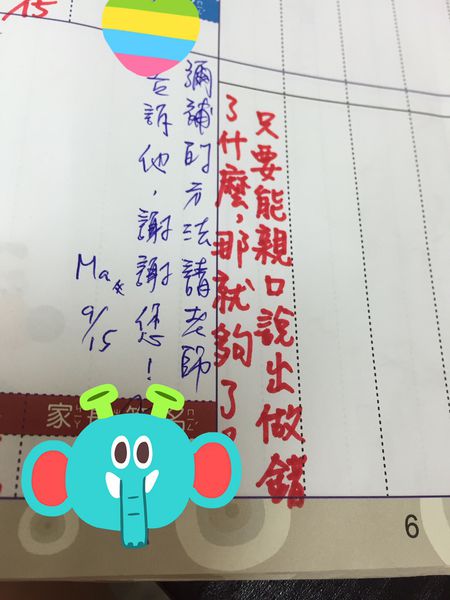 15
只要能親口說出做錯
了什麼，那就夠了
彌補的方法請老師
告訴他，謝謝您！
Ma
9/15
家
名
6